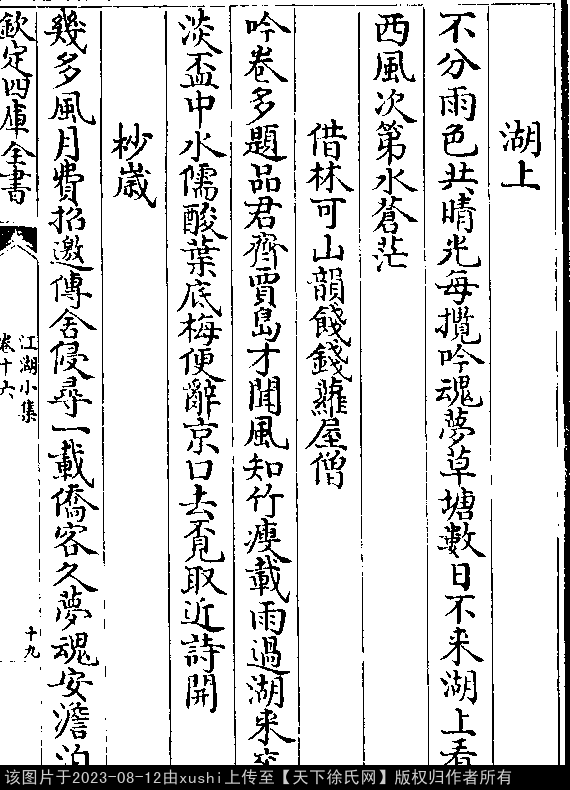 湖上
不分雨色共晴光每攬吟魂夢草塘數日不来湖上看
西風次第水蒼茫
借林可山韻餞錢蘿屋僧
吟卷多題品君齊賈島才聞風知竹瘦載雨過湖来
淡盃中水儒酸葉底梅便辭京口去覔取近詩開
杪歳
幾多風月費招邀傳舍侵尋一載僑客久夢魂安澹泊
欽定四庫全書
江湖小集
卷十六
十九
该图片于2023-08-12由xushi上传至【天下徐氏网】版权归作者所有